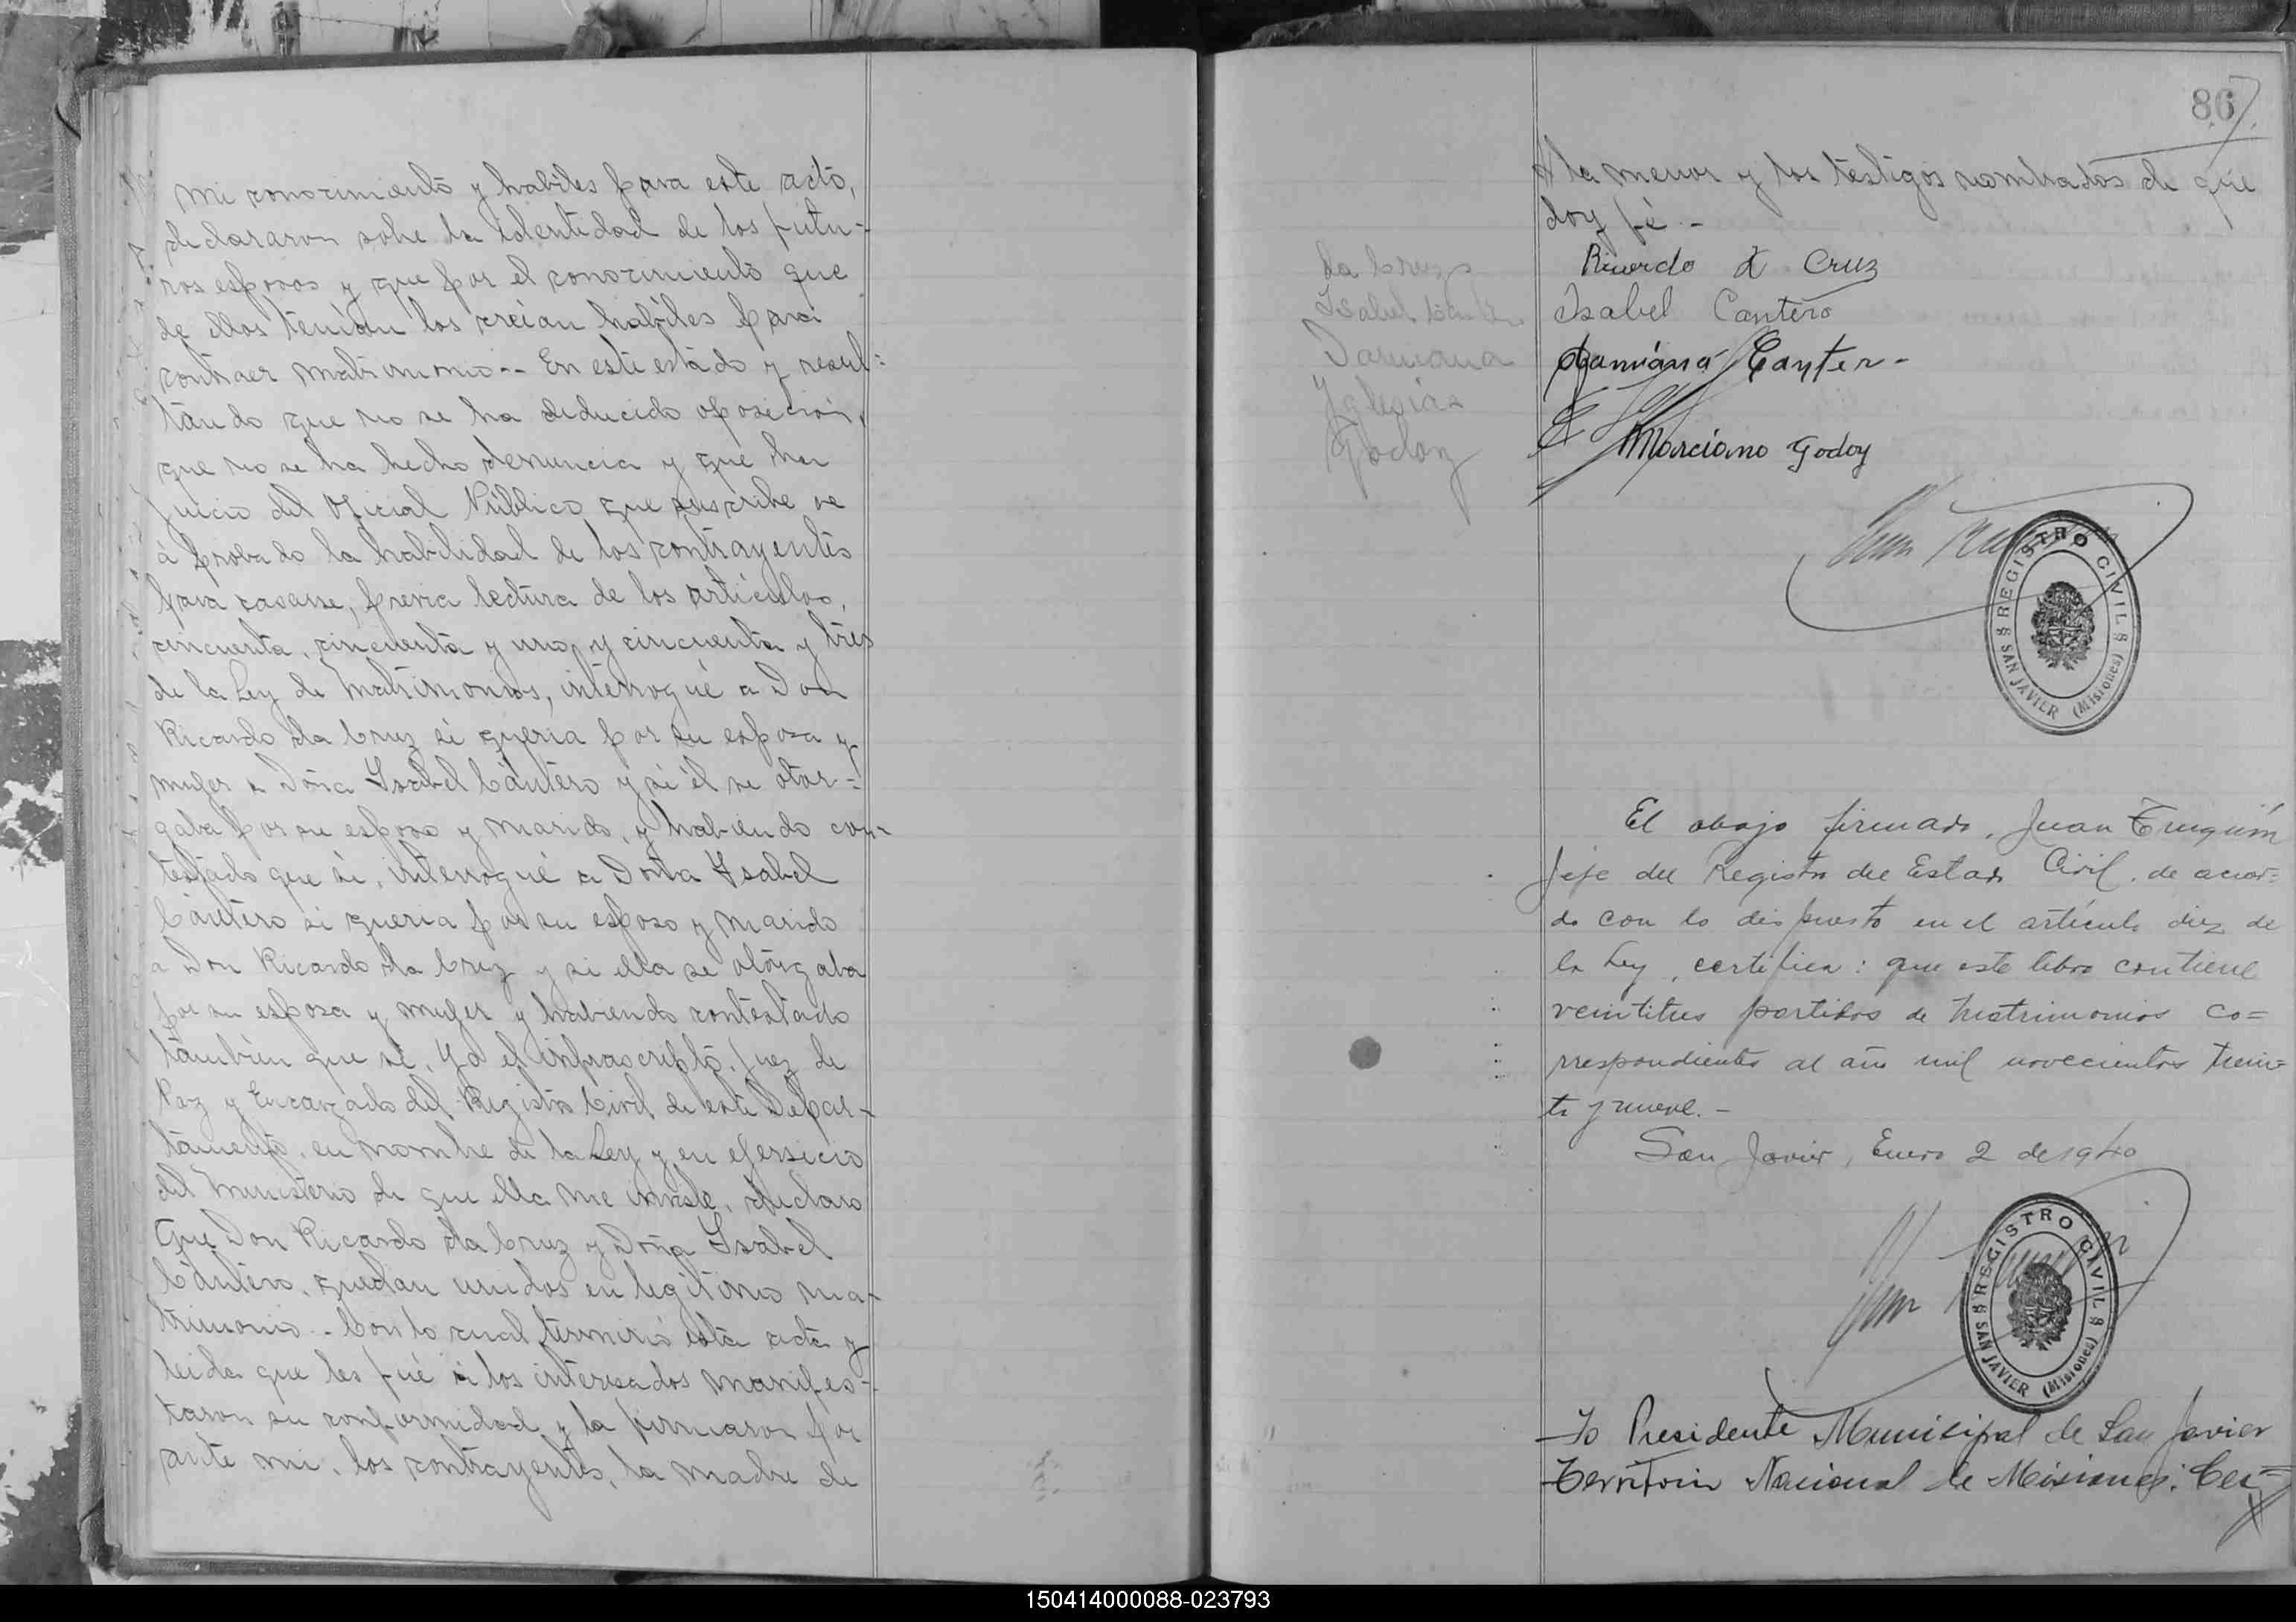 mi conocimiento y habiles para este acto,
declararon sobre la identidad de los futu-
ros esposos y que por el conocimiento que
de ellos tenían los creían habiles para
contraer matrimonio.- En este estado y resul-
tando que no se ha deducido oposición,
que no se ha hecho denuncia y que ha
juicio del Oficial Público que suscribe se
á probado la habilidad de los contrayentes
para casarse, previa lectura de los artículos,
cincuenta, cincuenta y uno, y cincuenta y tres
de la Ley de Matrimonios, interrogué a Don
Ricardo da Cruz si quería por su esposa y
mujer a Doña Ysabel Cántero y si él se otor-
gaba por su esposo y marido, y habiendo con-
testado que si, interrogué a Doña Ysabel
Cántero si queria por su esposo y marido
a Don Ricardo da Cruz y si ella se otorgaba
por su esposa y mujer y habiendo contestado
también que si, Yo el infrascripto, Juez de
Paz y Encargado del Registro Civil de este Depar-
tamento, en nombre de la Ley y en ejersicio
del Ministerio de que ella me inviste, declaro
Que Don Ricardo da Cruz y Doña Ysabel
Cántero, quedan unidos en legítimo ma-
trimonio.- Con lo cual terminó esta acta y
leida que les fué a los interesados manifes-
taron su conformidad y la firmaron por
ante mi, los contrayentes, la madre de
86
la menor y los testigos nombrados de que
doy fé.-
da Cruz
Ricardo d Cruz
Isabel Cántero
Isabel Cantero
Damiana
Damiana Canter-
Yglesias
Godoy
Marciano Godoy
REGISTRO CIVIL
SAN JAVIER (Misiones)
El abajo firmado, Juan Truquin
Jefe del Registro del Estado Civil, de acuer=
do con lo dispuesto en el artículo diez de
la Ley, certifica: que este libro contiene
veintitres partidas de Matrimonios co=
rrespondientes al año mil novecientos trein=
ta y nueve.-
San Javier, Enero 2 de 1940
REGISTRO CIVIL
SAN JAVIER (Misiones)
Yo Presidente Municipal de San Javier
Territorio Nacional de Misiones: Cer=
150414000088-023793